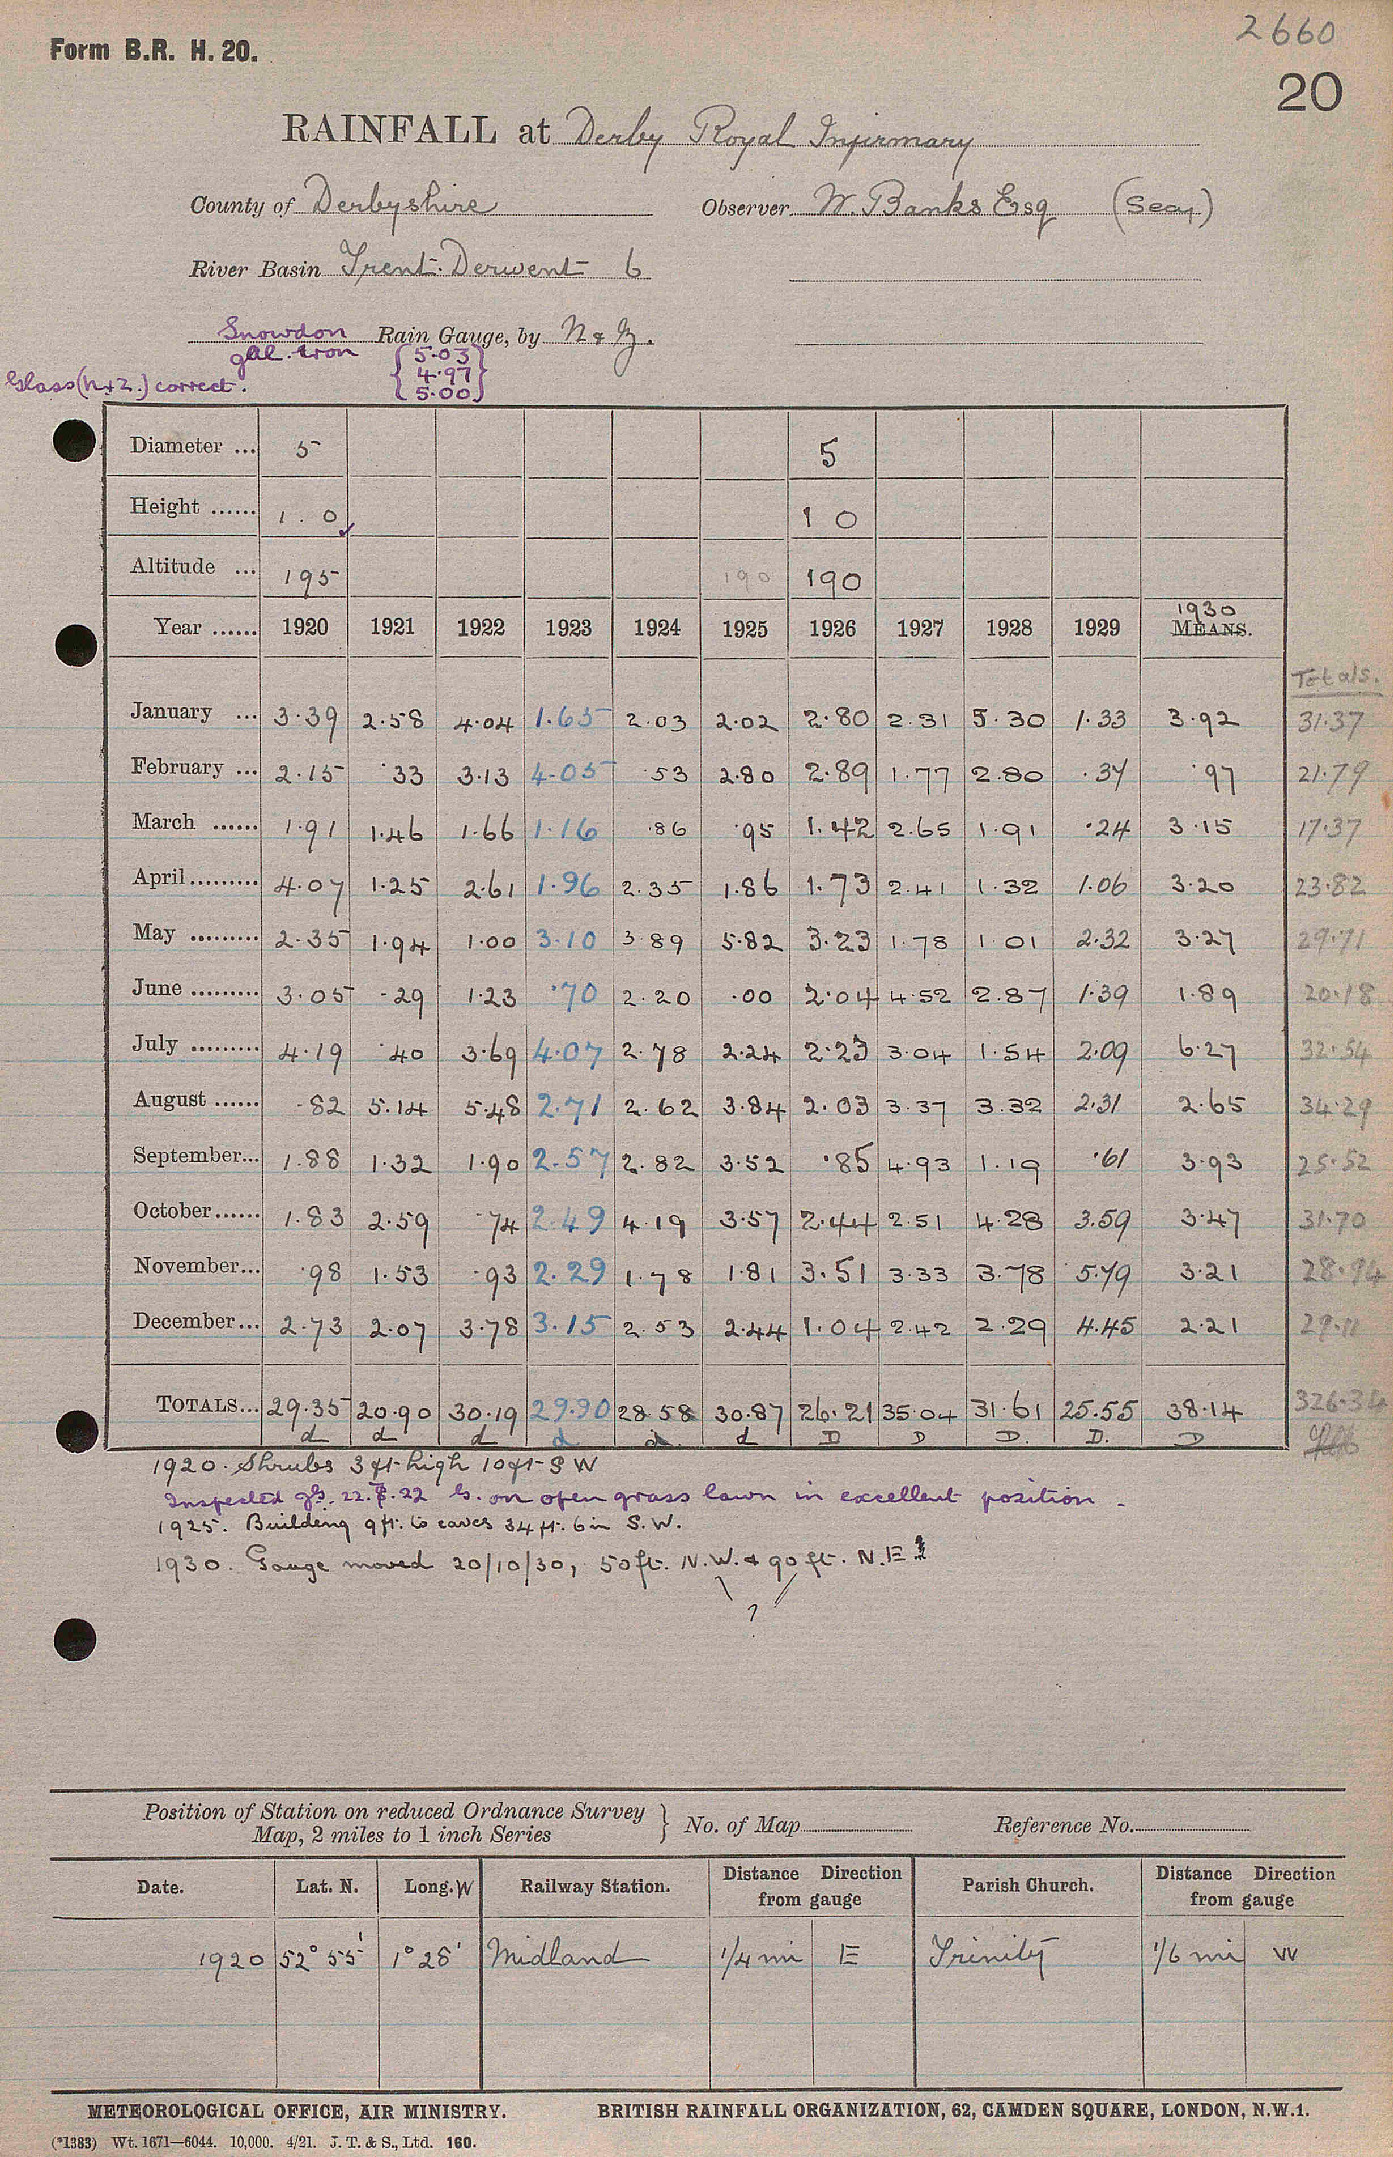 2660
Form B.R. H. 20.
20
RAINFALL at Derby Royal Infirmary
County of Derbyshire Observer W. Banks Esq (Secy)
River Basin Trent. Derwent 6
Snowdon Rain Gauge, by N & Z.
gal. iron {5.03}
Glass (N & Z.) correct. {4.97}
{5.00}
Diameter ... 5 5
Height ...... 1.0 1 0
Altitude ... 195 190 190
Year ...... 1920 1921 1922 1923 1924 1925 1926 1927 1928 1929 1930 MEANS.
Totals.
January ... 3.39 2.58 4.04 1.65 2.03 2.02 2.80 2.31 5.30 1.33 3.92 31.37
February ... 2.15 .33 3.13 4.05 .53 2.80 2.89 1.77 2.80 .37 .97 21.79
March ...... 1.91 1.46 1.66 1.16 .86 .95 1.42 2.65 1.91 .24 3.15 17.37
April......... 4.07 1.25 2.61 1.96 2.35 1.86 1.73 2.41 1.32 1.06 3.20 23.82
May ......... 2.35 1.94 1.00 3.10 3.89 5.82 3.23 1.78 1.01 2.32 3.27 29.71
June ......... 3.05 .29 1.23 .70 2.20 .00 2.04 4.52 2.87 1.39 1.89 20.18
July ......... 4.19 .40 3.69 4.07 2.78 2.24 2.23 3.04 1.54 2.09 6.27 32.54
August ...... .82 5.14 5.48 2.71 2.62 3.84 2.03 3.37 3.32 2.31 2.65 34.29
September... 1.88 1.32 1.90 2.57 2.82 3.52 .85 4.93 1.19 .61 3.93 25.52
October...... 1.83 2.59 .74 2.49 4.19 3.57 2.44 2.51 4.28 3.59 3.47 31.70
November... .98 1.53 .93 2.29 1.78 1.81 3.51 3.33 3.78 5.79 3.21 28.94
December... 2.73 2.07 3.78 3.15 2.53 2.44 1.04 2.42 2.29 4.45 2.21 29.11
TOTALS... 29.35 20.90 30.19 29.90 28.58 30.87 26.21 35.04 31.61 25.55 38.14 326.34
d d d d d d D D D. D. D
1920. Shrubs 3 ft high 10 ft S W
Inspected 22.7.22 G. on open grass lawn in excellent position.
1925. Building 9 ft. to eaves 34 ft. 6 in S.W.
1930. Gauge moved 20/10/30, 50 ft. N.W. & 90 ft. N.E
?
Position of Station on reduced Ordnance Survey
Map, 2 miles to 1 inch Series } No. of Map Reference No.
Date. Lat. N. Long. W Railway Station. Distance Direction from gauge Parish Church. Distance Direction from gauge
1920 52° 55' 1° 28' Midland 1/4 mi E Trinity 1/6 mi W
METEOROLOGICAL OFFICE, AIR MINISTRY. BRITISH RAINFALL ORGANIZATION, 62, CAMDEN SQUARE, LONDON, N.W.1.
(*1383) Wt. 1671—6044. 10,000. 4/21. J. T. & S., Ltd. 160.